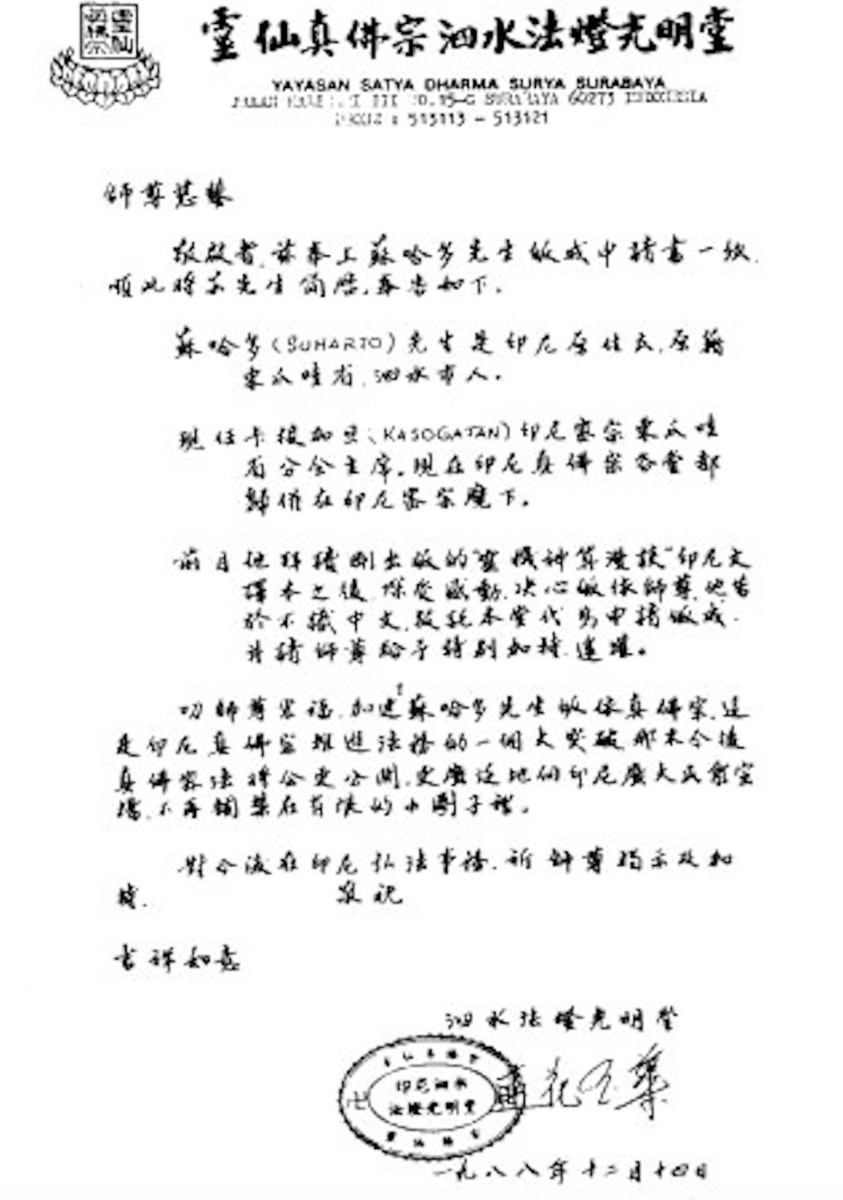 靈仙真佛宗泗水法燈光明堂
YAYASAN SATYA DHARMA SURYA SURABAYA
SURABAYA 60273 INDONESIA
513113 - 513121
師尊慈鑒
敬啟者,茲奉上蘇哈多先生皈戒申請書一紙,
順此將苏先生簡歷,奉告如下。
蘇哈多(SUHARTO)先生是印尼原住民,原籍
東爪哇省,泗水市人。
現任卡疏加旦(KASOGATAN)印尼密宗東爪哇
省分会主席。現在印尼真佛宗各堂都
歸併在印尼密宗麾下。
前月他拜讀剛出版的"靈機神算漫談"印尼文
譯本之後,深受感動,决心皈依師尊,他由
於不識中文,故託本堂代为申請皈戒。
并請師尊給予特别加持、灌頂。
師尊宏福,加建蘇哈多先生皈依真佛宗,這
是印尼真佛宗推進法務的一個大突破那末今後
真佛密法將会更公開,更廣泛地向印尼廣大民眾宣
播,不再錮禁在有限的小圈子裡。
對今後在印尼弘法事務,祈師尊指示及加
持. 敬祝
吉祥如意
泗水法燈光明堂
印尼泗水
法燈光明堂
卍
一九八八年十二月十四日